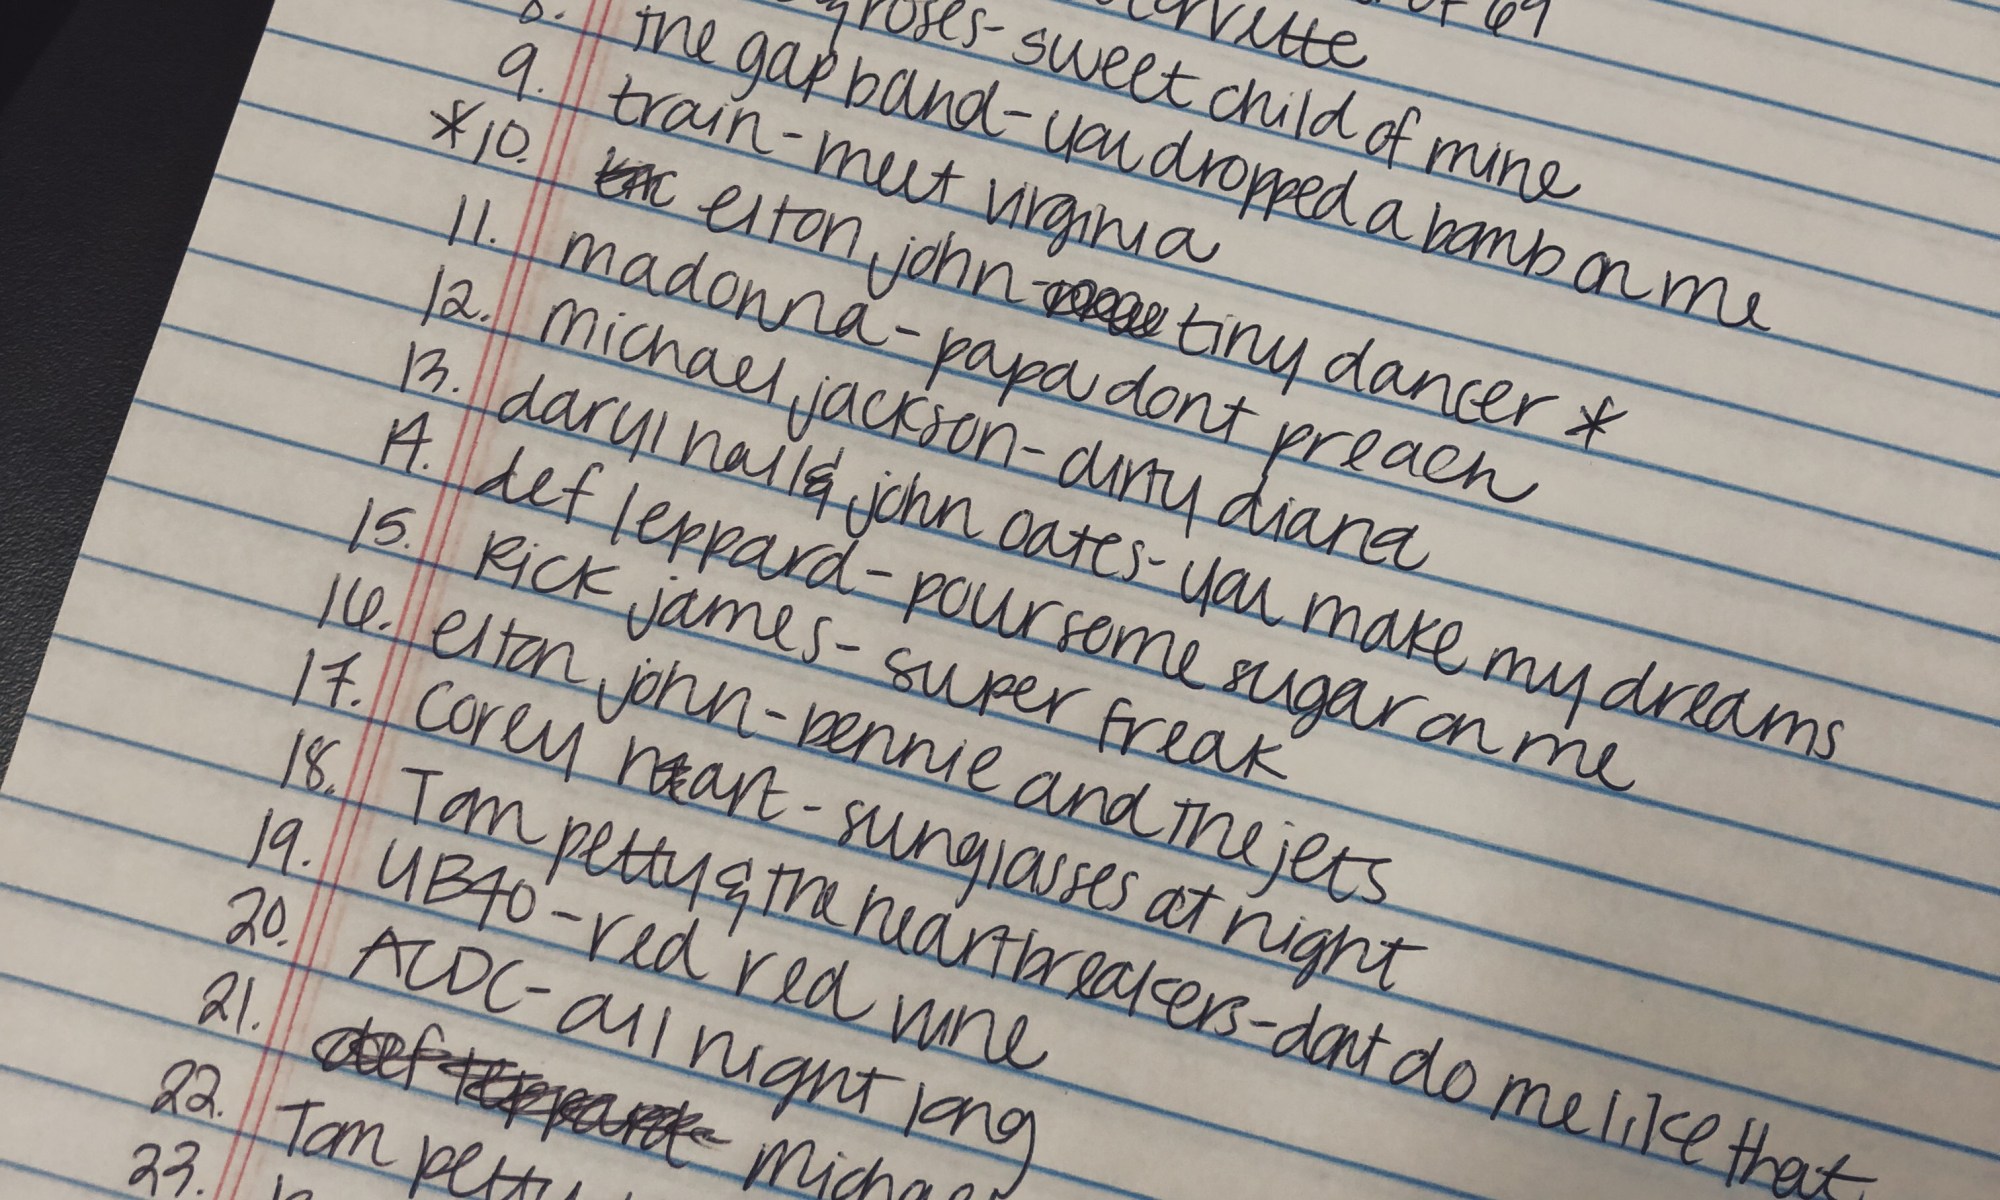 of 69
corvette
roses- sweet child of mine
8. the gap band - you dropped a bomb on me
9. train - meet virginia
*10. elton john - tiny dancer *
11. madonna - papa dont preach
12. michael jackson - dirty diana
13. daryl hall & john oates - you make my dreams
14. def leppard - pour some sugar on me
15. Rick james - super freak
16. elton john - bennie and the jets
17. corey hart - sunglasses at night
18. Tom petty & the heartbreakers - dont do me like that
19. UB40 - red red wine
20. ACDC - all night long
21. def leppard - Michae
22. Tom petty
23.